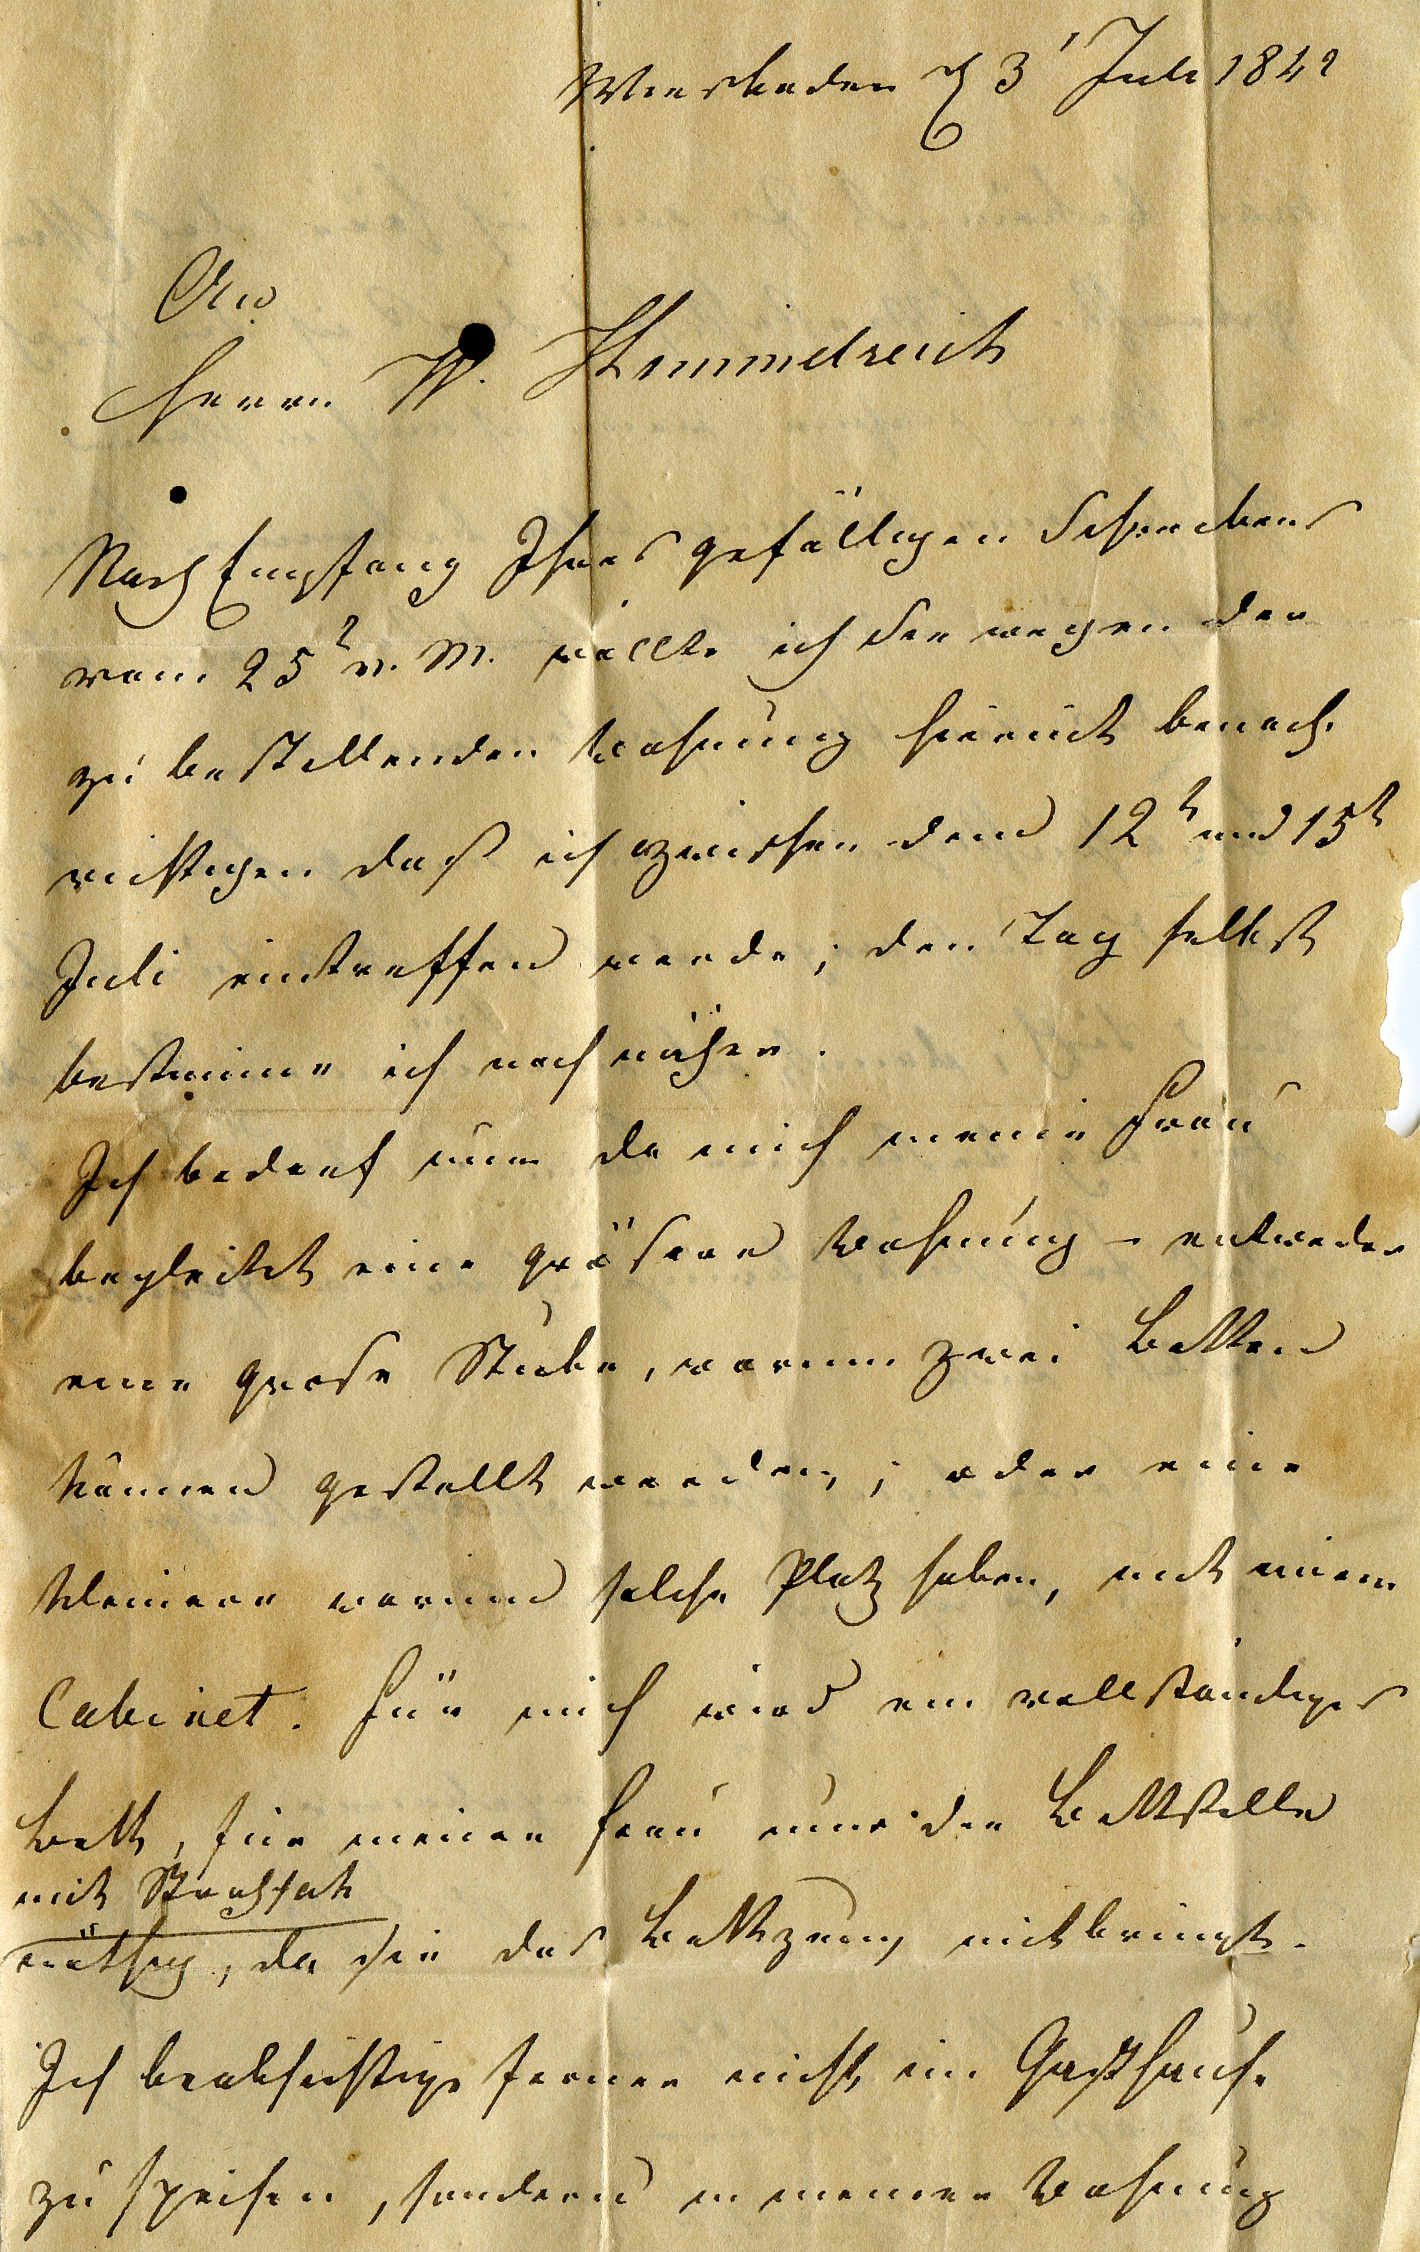 Wiesbaden d 3' Juli 1842
An
Herrn W. Himmelreich
Nach Empfang Ihres gefälligen Schreibens
vom 25t v. M. wollte ich Sie wegen der
zu bestellenden Wohnung hiemit benach-
richtigen daß ich zwischen dem 12t und 15t
Juli eintreffen werde; den Tag selbst
bestimme ich noch näher.
Ich bedarf nun da mich meine Frau
begleitet eine grösere Wohnung – entweder
eine grose Stube, worinn zwei Betten
können gestellt werden; oder eine
kleinere worinn solche Platz haben, mit einem
Cabinet. Für mich wird ein vollständiges
Bett, für meine Frau nur die Bettstelle
mit Strohsack
nöthig, da sie das Bettzeug mitbringt.
Ich beabsichtige ferner nicht, im Gasthause
zu speisen, sondern in meiner Wohnung